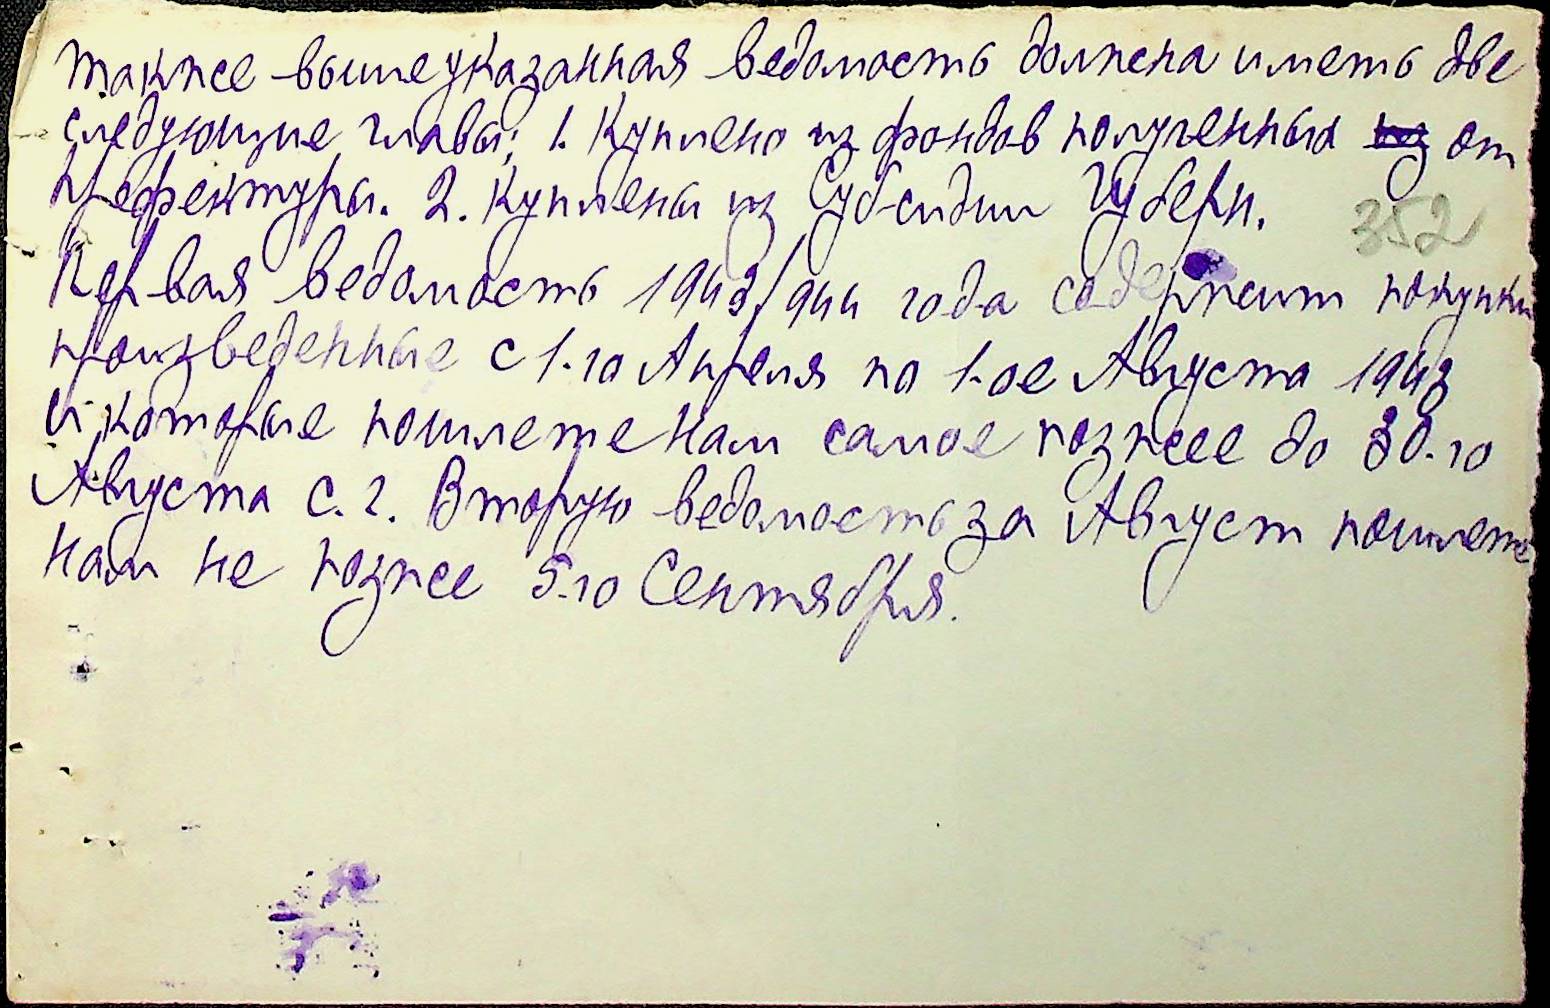 также вышеуказанная ведомость должна иметь две
следующие главы; 1. Куплено из фондов полученных от
Префектуры. 2. Куплены из Субсидии Губерн.
352
Первая ведомость 1943/944 года содержит покупки
произведенные с 1-го Апреля по 1-ое Августа 1943
и которые пошлете нам самое позжее до 30-го
Августа с. г. Вторую ведомость за Август пошлете
нам не позже 5-го Сентября.